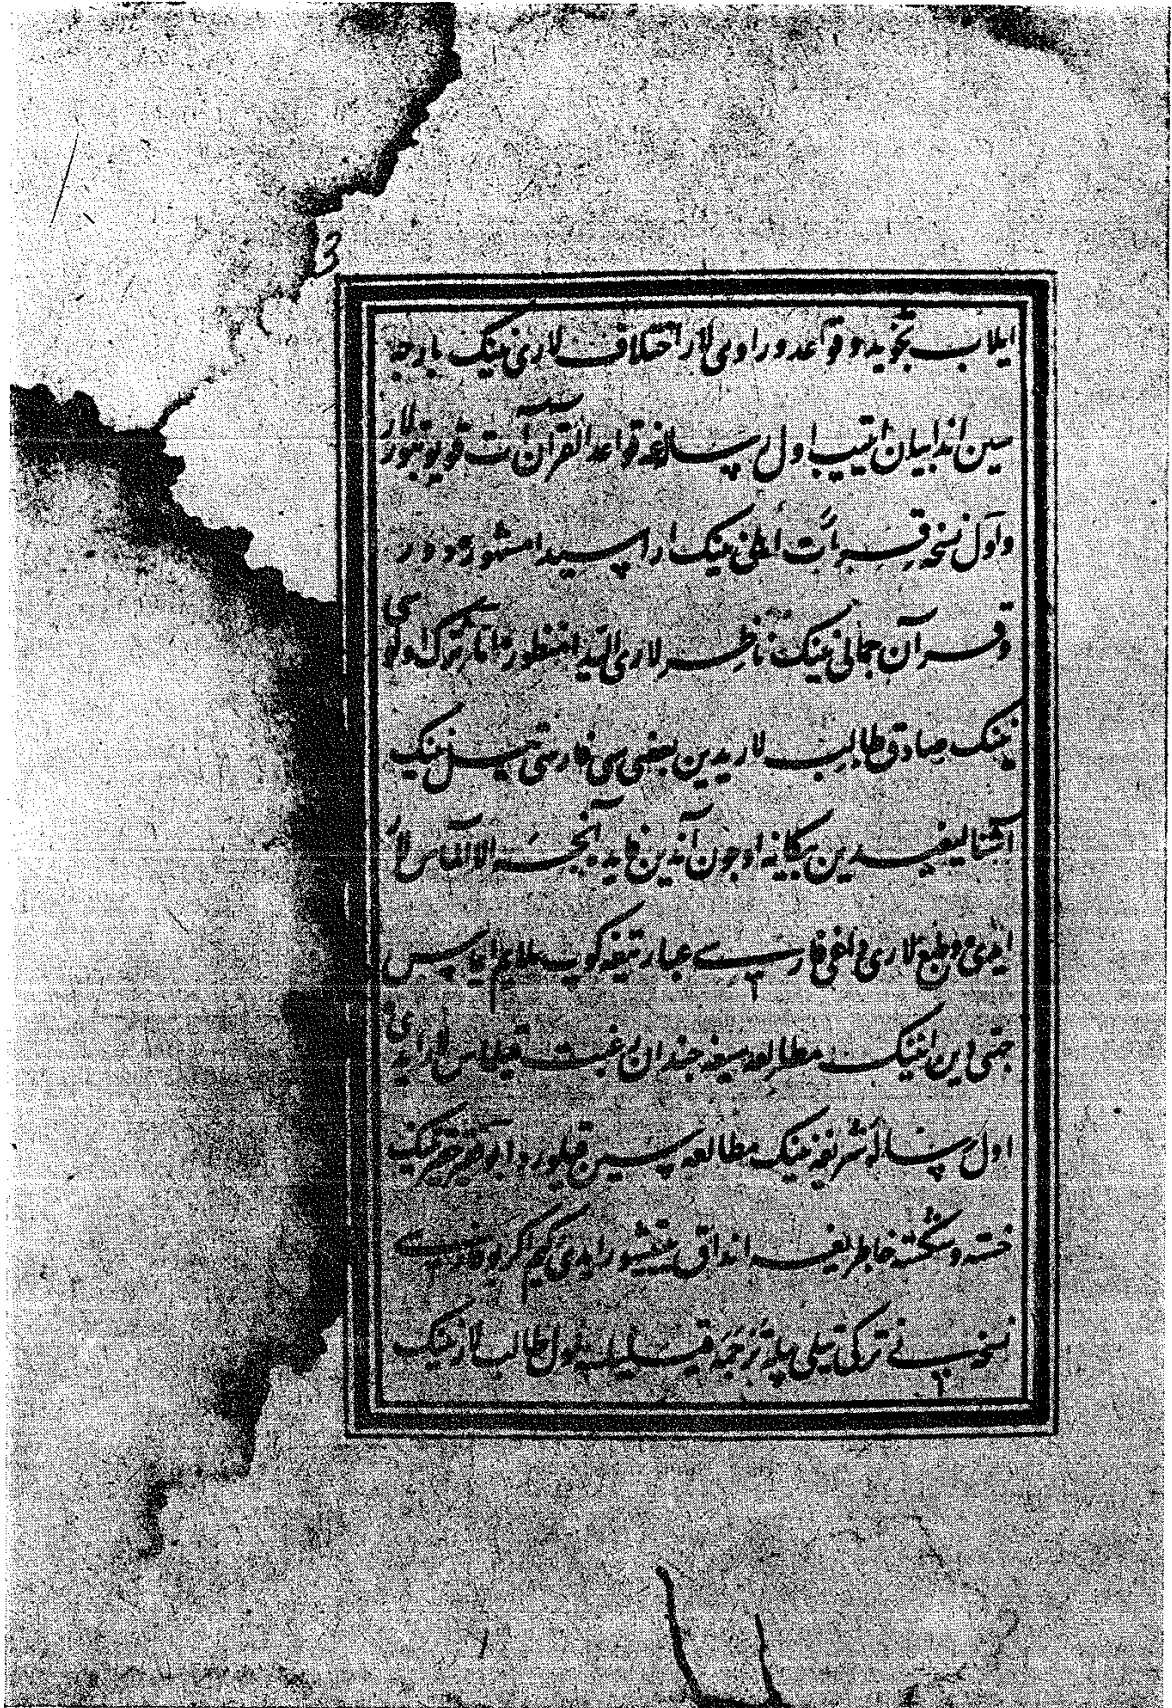 3
ایلاب تجوید و قواعد و راوی لار اختلاف لاری نینک بارچه
سین اندا بیان ایتیب اول رساله غه قواعد القرآن آت قویوبتورلار
و اول نسخه قرأت اهلی نینک اراسیدا مشهور دور
و قرآن جمالی نینک ناظر لاری الیدا منظور اما ترک اولوسی
نینک صادق طالب لاریدین بعضی سی فارسی تیل نینک
آشنالیغیدین بیکانه اوچون آندین فایده آنچه الا آلماس لار
ایدی و طبع لاری داغی فارسی عبارتیغه کوپ ملایم ایماس
جهتی دین انینک مطالعه سیغه چندان رغبت قیلماس لار ایدی
اول رساله شریفه نینک مطالعه سین قیلور دا بو فقیر حقیر نینک
خسته و شکسته خاطریغه انداق ییتیشور ایدی کیم اکر بو فارسی
نسخه نی ترکی تیلی بیله ترجمه قیلیلسه اول طالب لار نینک